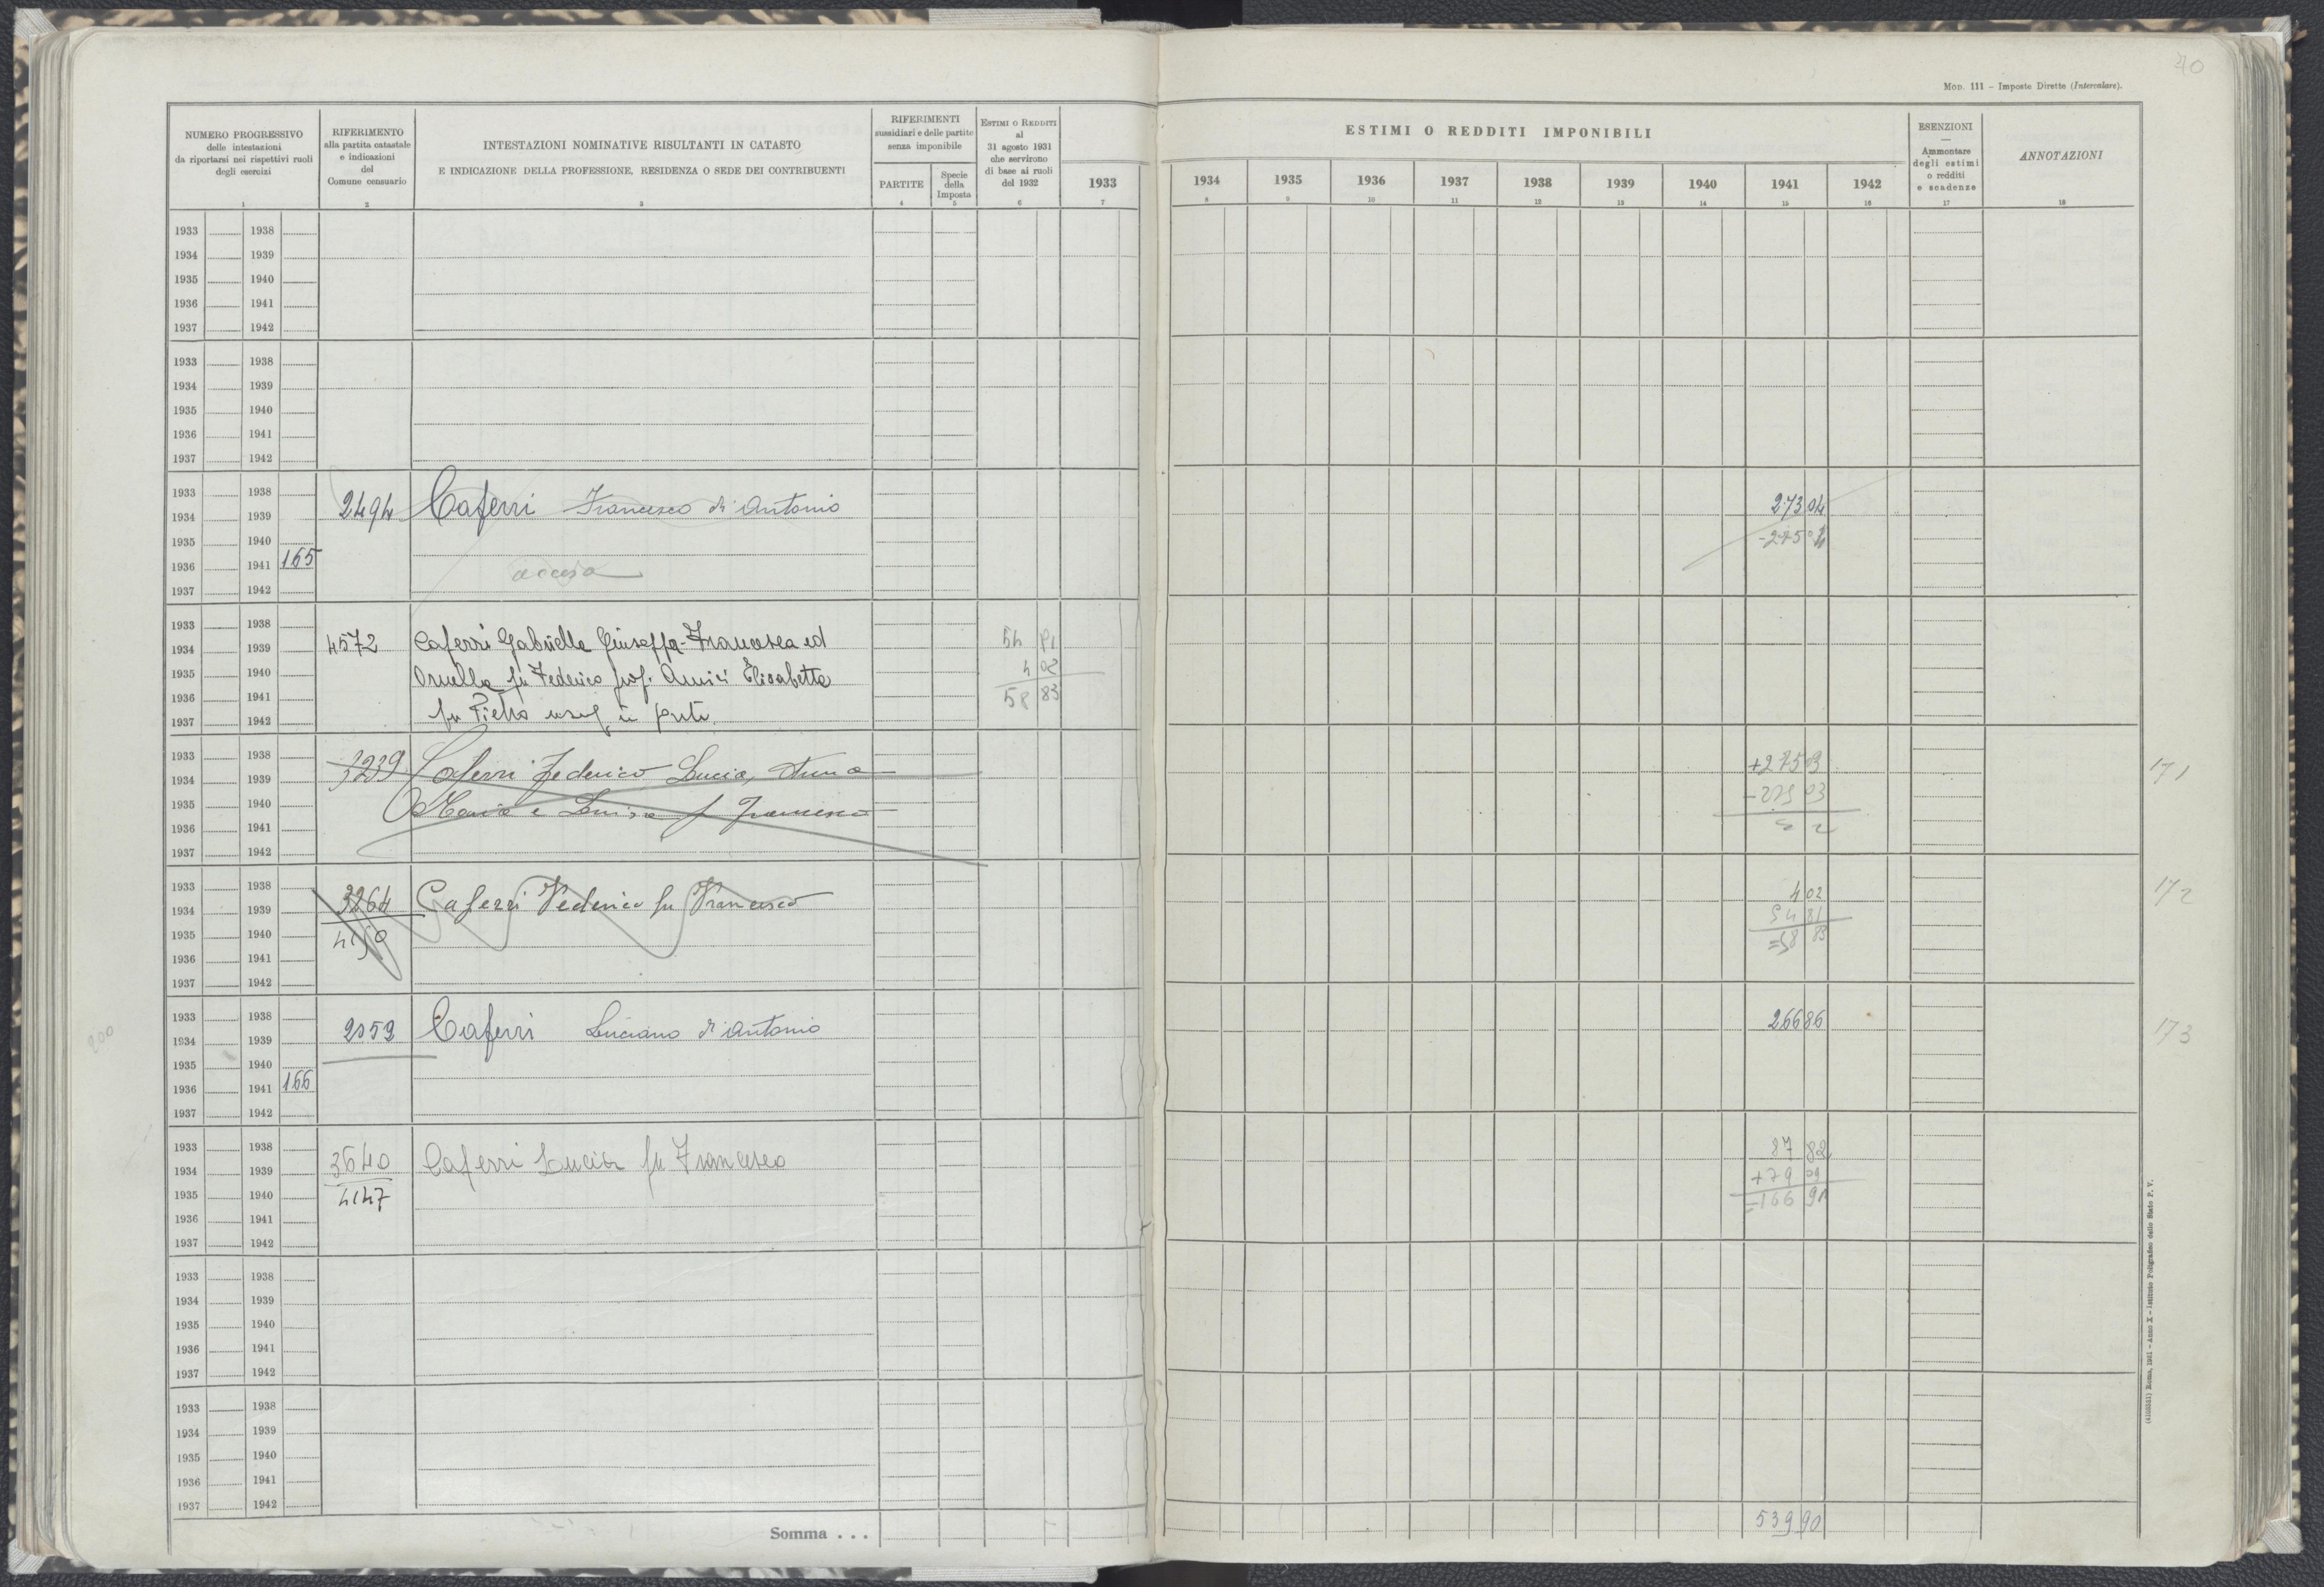 40
MOD. 111 – Imposte Dirette (Intercalare).
NUMERO PROGRESSIVO
delle intestazioni
da riportarsi nei rispettivi ruoli
degli esercizi
1
RIFERIMENTO
alla partita catastale
e indicazioni
del
Comune censuario
2
INTESTAZIONI NOMINATIVE RISULTANTI IN CATASTO
E INDICAZIONE DELLA PROFESSIONE, RESIDENZA O SEDE DEI CONTRIBUENTI
3
RIFERIMENTI
sussidiari e delle partite
senza imponibile
PARTITE
4
Specie
della
Imposta
5
ESTIMI O REDDITI
al
31 agosto 1931
che servirono
di base ai ruoli
del 1932
6
1933
7
ESTIMI O REDDITI IMPONIBILI
1934 1935 1936 1937 1938 1939 1940 1941 1942
8 9 10 11 12 13 14 15 16
ESENZIONI
—
Ammontare
degli estimi
o redditi
e scadenze
17
ANNOTAZIONI
18
1933 1938
1934 1939
1935 1940
1936 1941
1937 1942
1933 1938
1934 1939
1935 1940
1936 1941
1937 1942
1933 1938
1934 1939 2494 Caferri Francesco di Antonio 273 04
1935 1940
1936 1941 165
1937 1942
1933 1938
1934 1939 4572 Caferri Gabriella Giuseppa-Francesca ed 54 81
1935 1940 Ornella fu Federico prop. Amici Elisabetta 4 02
1936 1941 fu Pietro usuf in parte 58 83
1937 1942
1933 1938
1934 1939 3239 Caferri Federico Lucia, Anna +275 03 171
1935 1940 Maria e Luisa fu Francesco -275 03
1936 1941
1937 1942
1933 1938
1934 1939 3264 Caferri Federico fu Francesco 4 02 172
1935 1940 4150 54 81
1936 1941 =58 83
1937 1942
1933 1938
1934 1939 2059 Caferri Luciano di Antonio 266 86 173
200
1935 1940
1936 1941 166
1937 1942
1933 1938
1934 1939 3640 Caferri Lucia fu Francesco 87 82
1935 1940 4147 +79 09
1936 1941 =166 91
1937 1942
1933 1938
1934 1939
1935 1940
1936 1941
1937 1942
1933 1938
1934 1939
1935 1940
1936 1941
1937 1942
Somma . . . 539 90
Roma, 1931 – Anno X – Istituto Poligrafico dello Stato P. V.